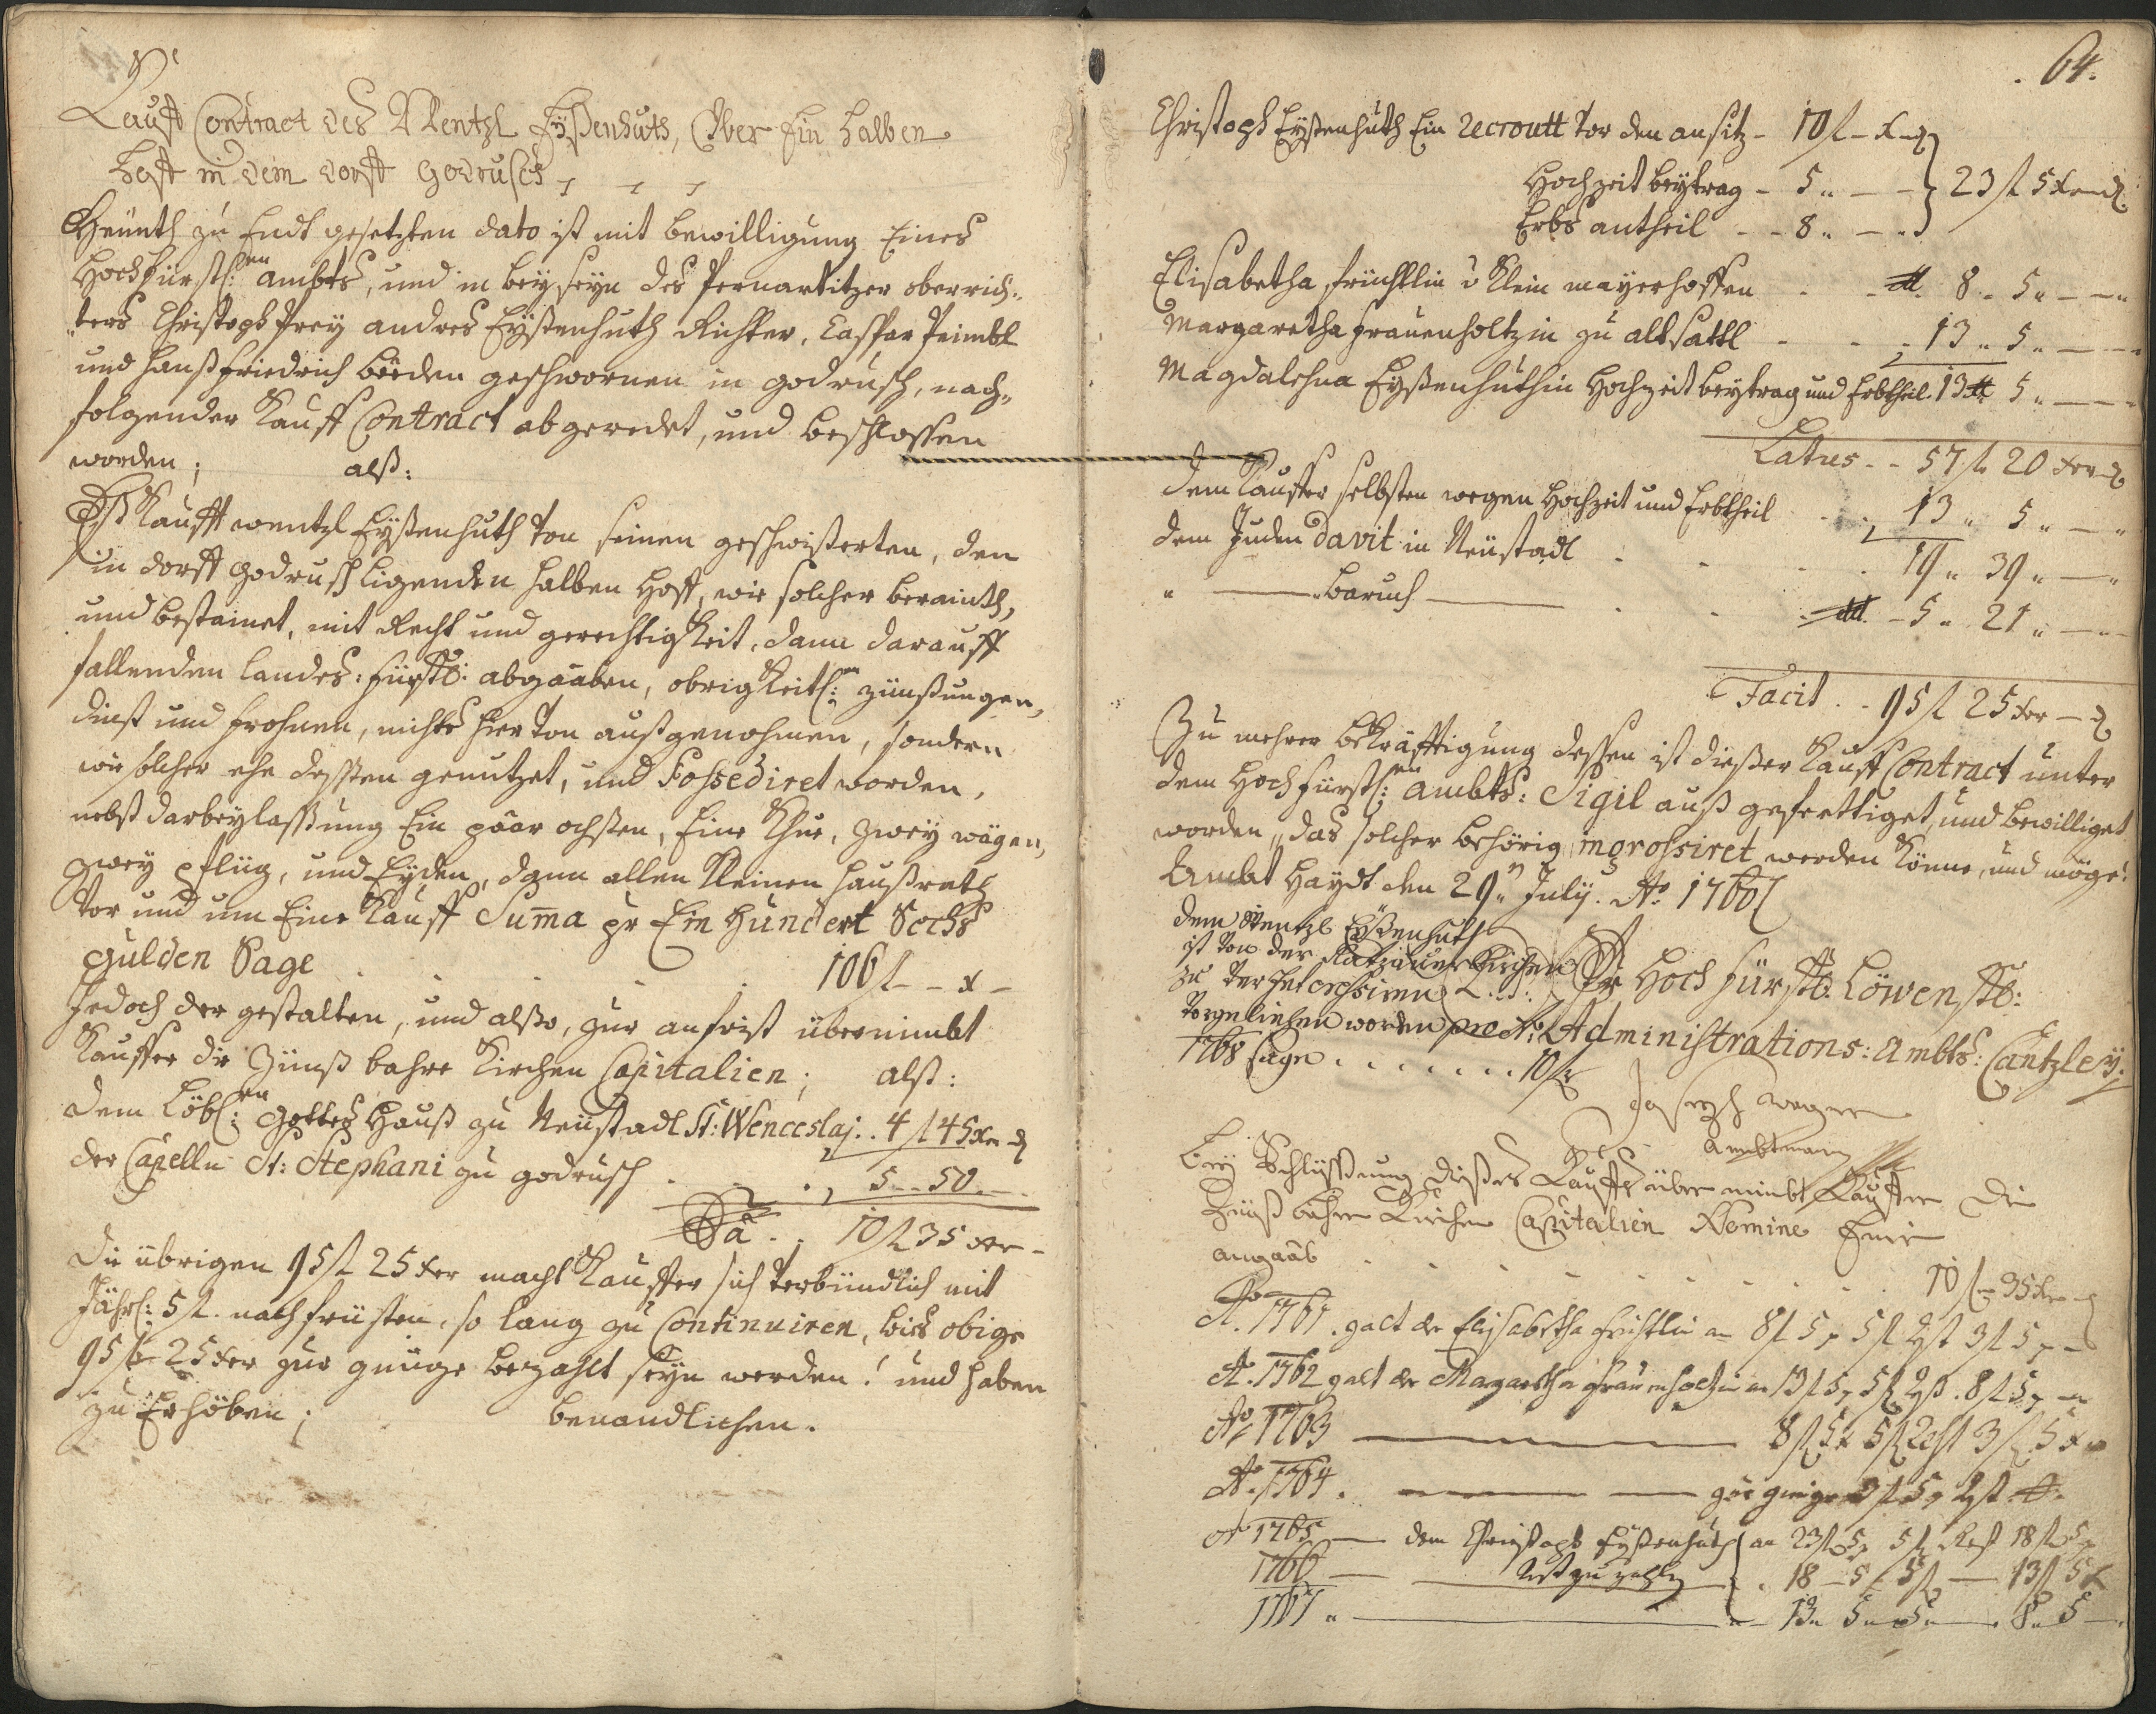 Kauff Contract des Wentzl Eyßenhuts, Über Ein halben
hoff in dem dorff Godrusch
Heünth zu Endt gesetzten dato ist mit bewilligung Eines
Hochfürstl:en ambts, und in beyseyn des Pernartitzer oberrich„
„ters Christoph Frey andres Eyßenhuth Richter, Caspar Peimbl
und Hanß Friedrich beeden geschwornen in godrusch, nach„
folgender Kauff Contract abgeredet, und beschlossen
worden; alß:
Eß Kaufft wentzl Eyßenhuth von seinen geschwißerten, den
in dorff godrusch ligenden halben Hoff, wie solcher berainth,
und bestainet, mit Recht und gerechtigkeit, dann darauff
fallenden landes: fürstl: abgaaben, obrigkeitl:en zünßungen,
dinst und frohnen, nichts hier von außgenohmen, sondern
wie solcher ehe dessten genutzet, und Possediret worden,
nebst darbeylassung Ein paar ochsten, Eine Khue, zwey wägen,
zwey pflüg, und Eyden, dann allen kleinen haußrath
vor und um Eine Kauff Suma pr Ein Hundert Sechs
gulden Sage . . . . 106 f – x –
Jedoch der gestalten, und alßo, zur anfrist übernimbt
Kauffer die Zünß bahre Kirchen Capitalien; alß:
dem Löbl:en Gottes Hauß zu Neüstadl St: Wenceslaj . . 4 f 45 xr ₰
der Capelln St: Stephani zu godrusch . . . 5 – 50 –
Sa . . 10 f 35 xr –
Die übrigen 95 f 25 xer macht Kauffer sich verbündlich mit
Jährl: 5 f. nachfrüsten, so lang zu Continuiren, bies obige
95 f 25 xer zur gnüge bezahlt seyn werden! und haben
zu Erhöben; benandlichen.
. 64.
Christoph Eyßenhuth Ein recroutt vor den ansitz – 10 f – x – ₰
Hochzeit beytrag – 5 „ – – } 23 f 5 xer ₰
Erbs antheil – – 8 „ – „
Elisabetha früchtlin v Klein mayerhoffen . . 8 „ 5 „ – –
Margaretha Frauenholtzin zu altsattl . . . 13 „ 5 „ – –
Magdalehna Eyßenhuthin Hochzeit beytrag und Erbtheil. 13 5 „ – –
Latus – – 57 f 20 xer ₰
dem Kauffer selbsten wegen Hochzeit und Erbtheil . . 13 „ 5 „ – „
dem Juden Davit in Neüstadl . . . . 19 „ 39 „ – „
„ – baruch – . . . – 5 „ 21 „ – –
Facit . . 95 f 25 xer – ₰
Zu mehrer bekräfftigung dessen ist dießer Kauff Contract unter
dem Hochfürstl:en ambts: Sigil auß gefertiget, und bewilliget
worden, „das solcher behörig ingrossiret werden könne, und möge!
Ambt Haydt den 29n July. Ao 1760
dem Wentzl Eyßenhuth
ist von der Katzauer Kirchen
zu verInteressiren
vorgeliehen worden pro Ao
1768 sage . . . . . . . 10 f
Hoch fürstl: Löwenstl:
Administrations: Ambts: Cantzley.
Joseph Wagner
Ambtmann
bey Schlüßung dießes Kauffs über nimbt Kauffer die
Zinß bahre Kirchen Capitalien Nomine Einer
angaab . . . . . . . 10 f – 35 xr –
Ao. 1761. galt der Elisabetha Früchtlin an 8 f 5 x 5 f Rst 3 f 5 x –
Ao. 1762 galt der Margaretha Frauenholtzin an 13 f 5 x 5 f Rst. 8 f 5 x –
Ao 1763 – 8 f 5 x 5 f Rest 3 f 5 x
Ao. 1764. – – zur gnüge 3 f 5 x Rst
Ao 1765 – dem Christoph Eyßenhuth an 23 f 5 x 5 f Rest 18 f 5 x
1766 – Rst zu zahlen „ 18 – 5 – 5 f – 13 f 5 x
1767 „ – 13 „ 5 „ 5 „ – 8 „ 5 –